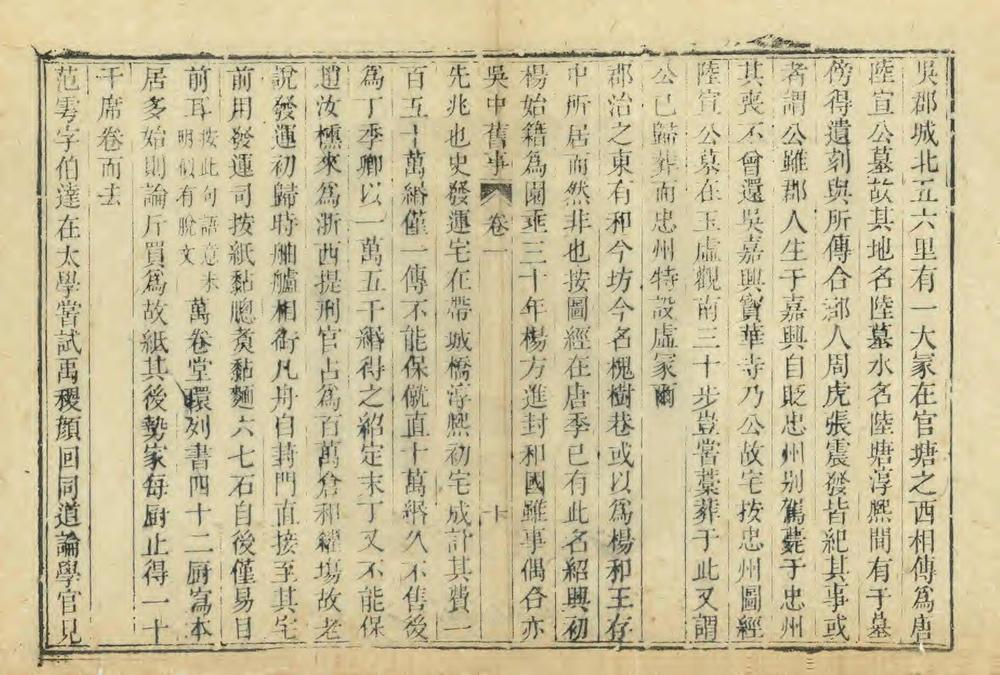 吳郡城北五六里有一大冢在官塘之西相傳爲唐
陸宣公墓故其地名陸墓水名陸塘淳熙間有于墓
傍得遺刻與所傳合郡人周虎張震發皆紀其事或
者謂公雖郡人生于嘉興自貶忠州别駕薨于忠州
其喪不曾還吳嘉興寶華寺乃公故宅按忠州圖經
陸宣公墓在玉虛觀南三十步豈嘗藁葬于此又謂
公已歸葬而忠州特設虛冢爾
郡治之東有和令坊今名槐樹巷或以爲楊和王存
中所居而然非也按圖經在唐季已有此名紹興初
楊始籍爲園亟三十年楊方進封和國雖事偶合亦
吳中舊事 卷一 十
先兆也史發運宅在帶城橋淳熙初宅成計其費一
百五十萬緡僅一傳不能保僦直十萬緡久不售後
爲丁季卿以一萬五千緡得之紹定末丁又不能保
趙汝櫄來爲浙西提刑官占爲百萬倉和糴場故老
說發運初歸時舳艫相銜凡舟自封門直接至其宅
前用發運司按紙黏牕煑黏麵六七石自後僅易目
前耳按此句語意未明似有脫文萬卷堂環列書四十二厨寫本
居多始則論斤買爲故紙其後勢家每厨止得一十
千席卷而去
范雩字伯達在太學嘗試禹稷顏回同道論學官見